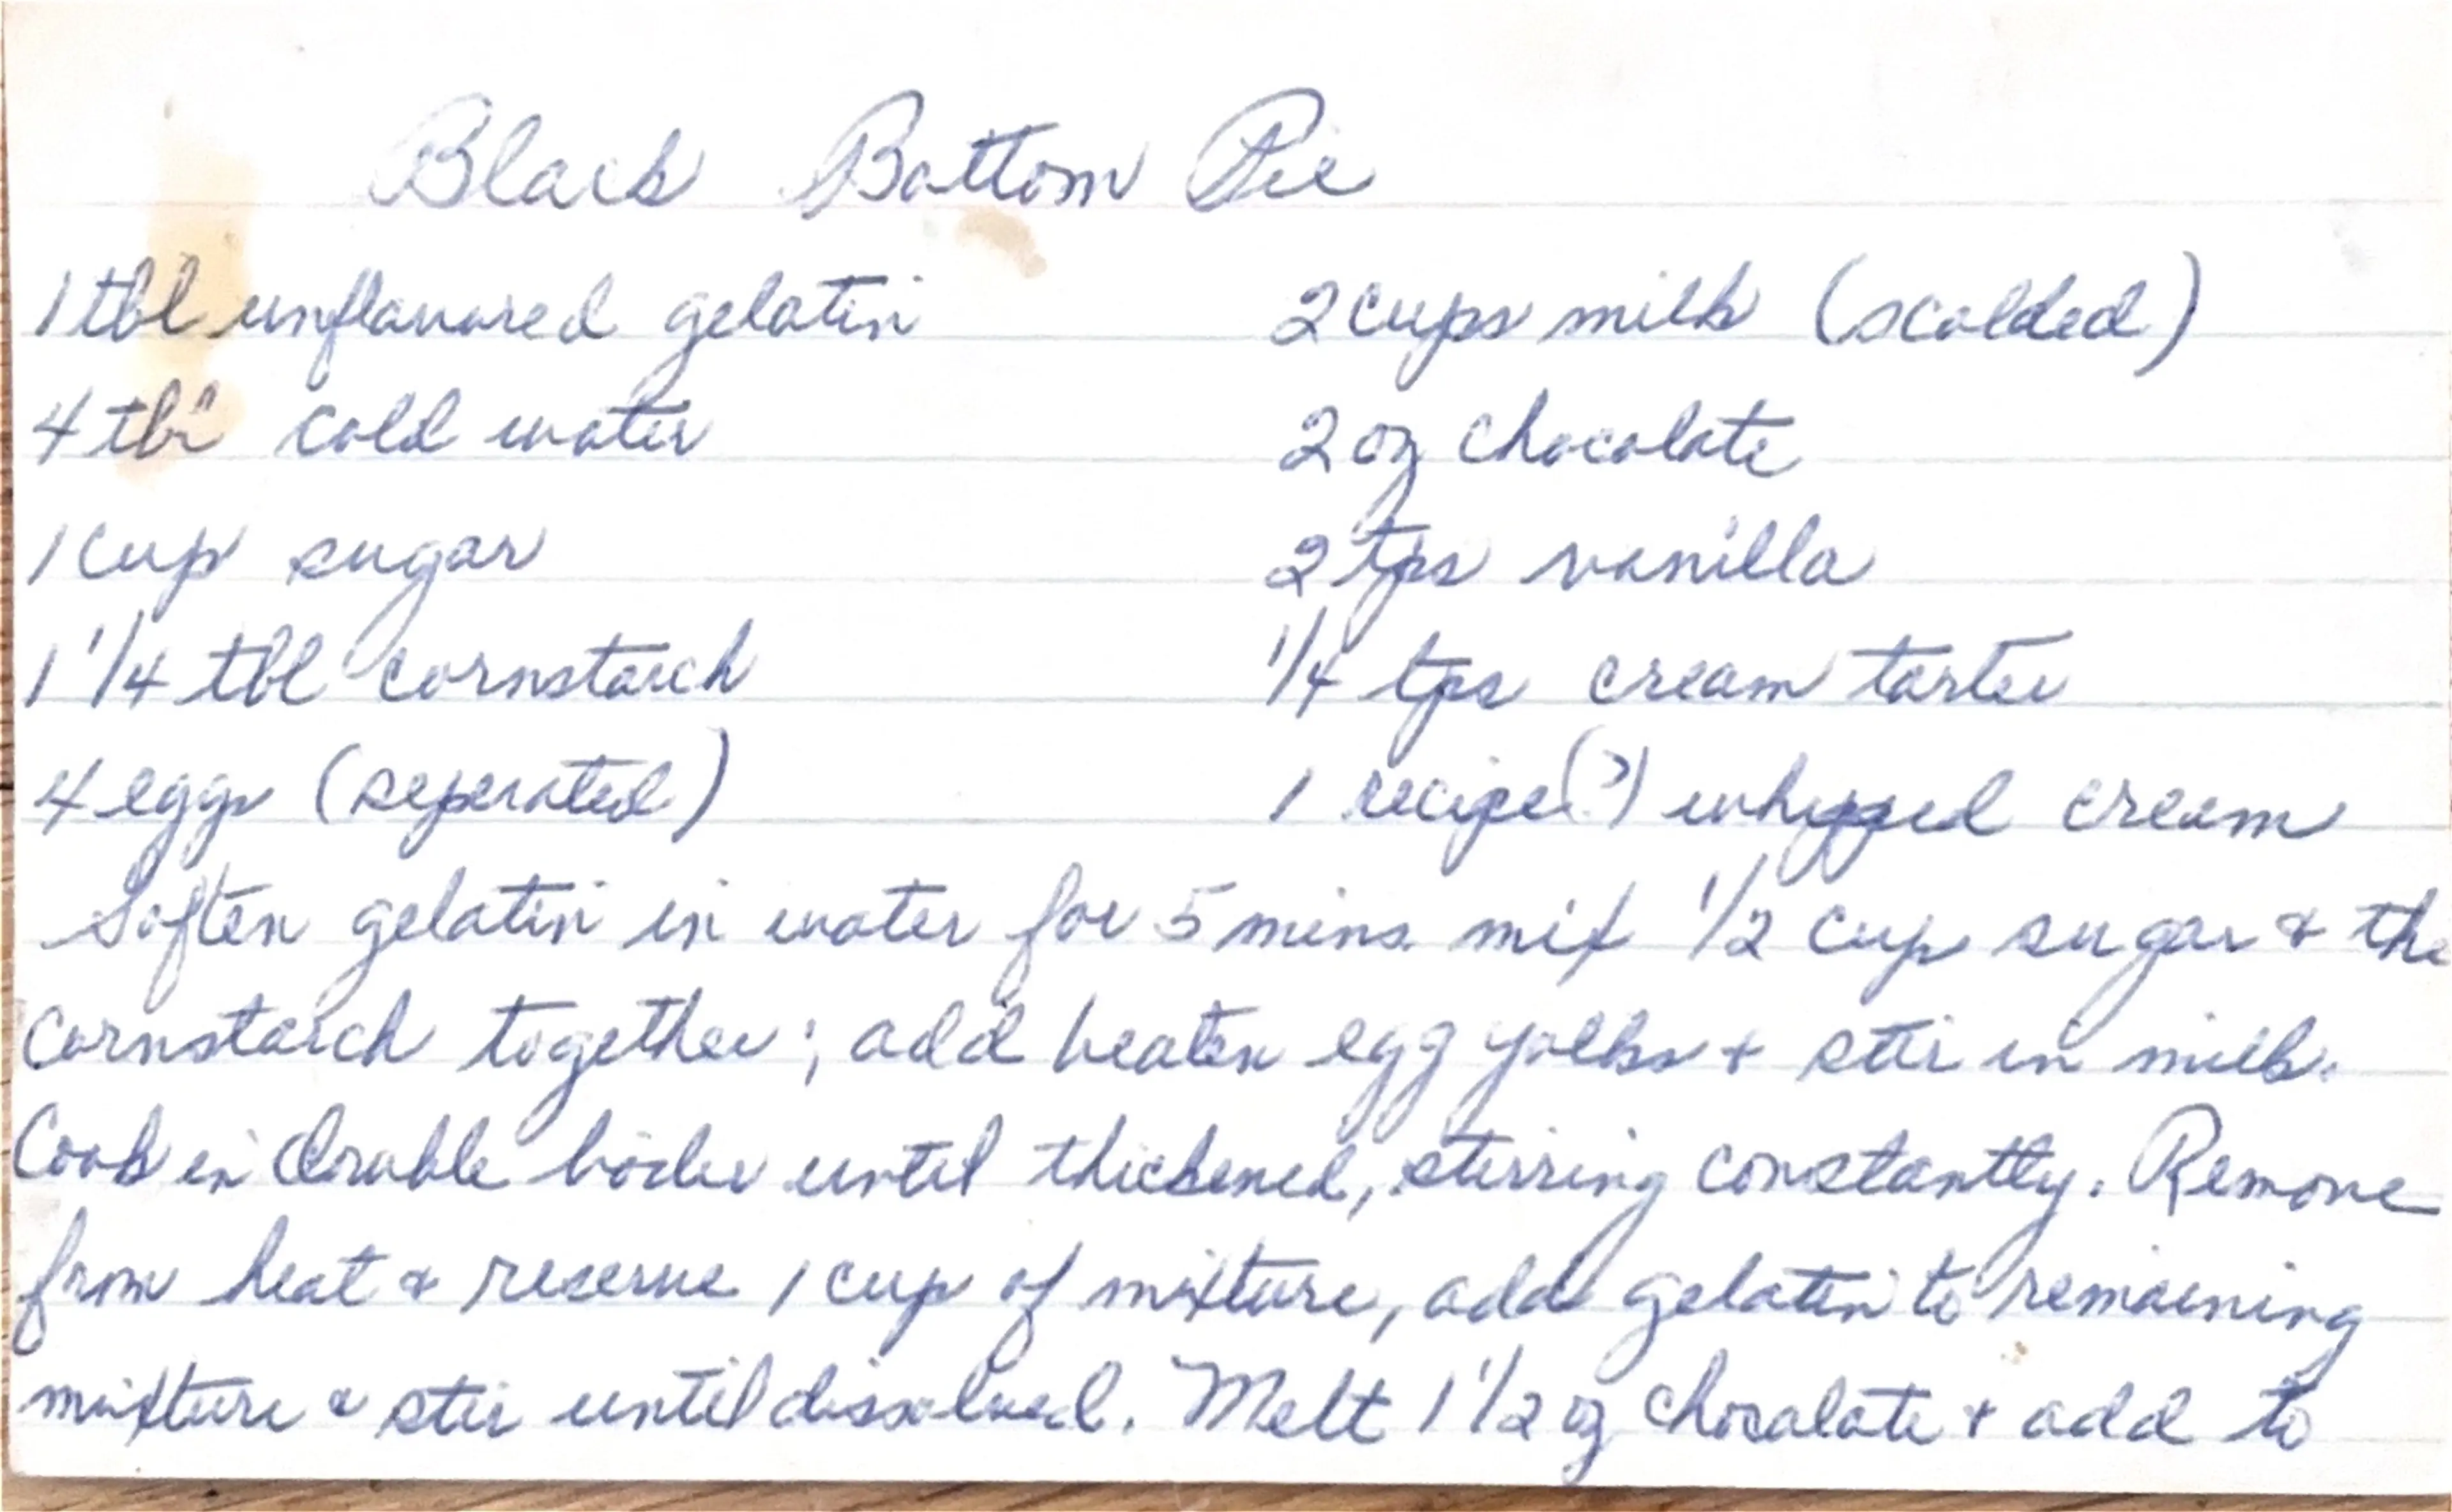 Black Bottom Pie
1 tbl unflavored gelatin 2 cups milk (scalded)
4 tbl cold water 2 oz chocolate
1 cup sugar 2 tps vanilla
1 1/4 tbl cornstarch 1/4 tps cream tarter
4 eggs (seperated) 1 recipe(?) whipped cream
Soften gelatin in water for 5 mins. mix 1/2 cup sugar & the
cornstarch together; add beaten egg yolks & stir in milk.
Cook in double boiler until thickened, stirring constantly. Remove
from heat & reserve 1 cup of mixture, add gelatin to remaining
mixture & stir until dissolved. Melt 1 1/2 oz chocolate & add to